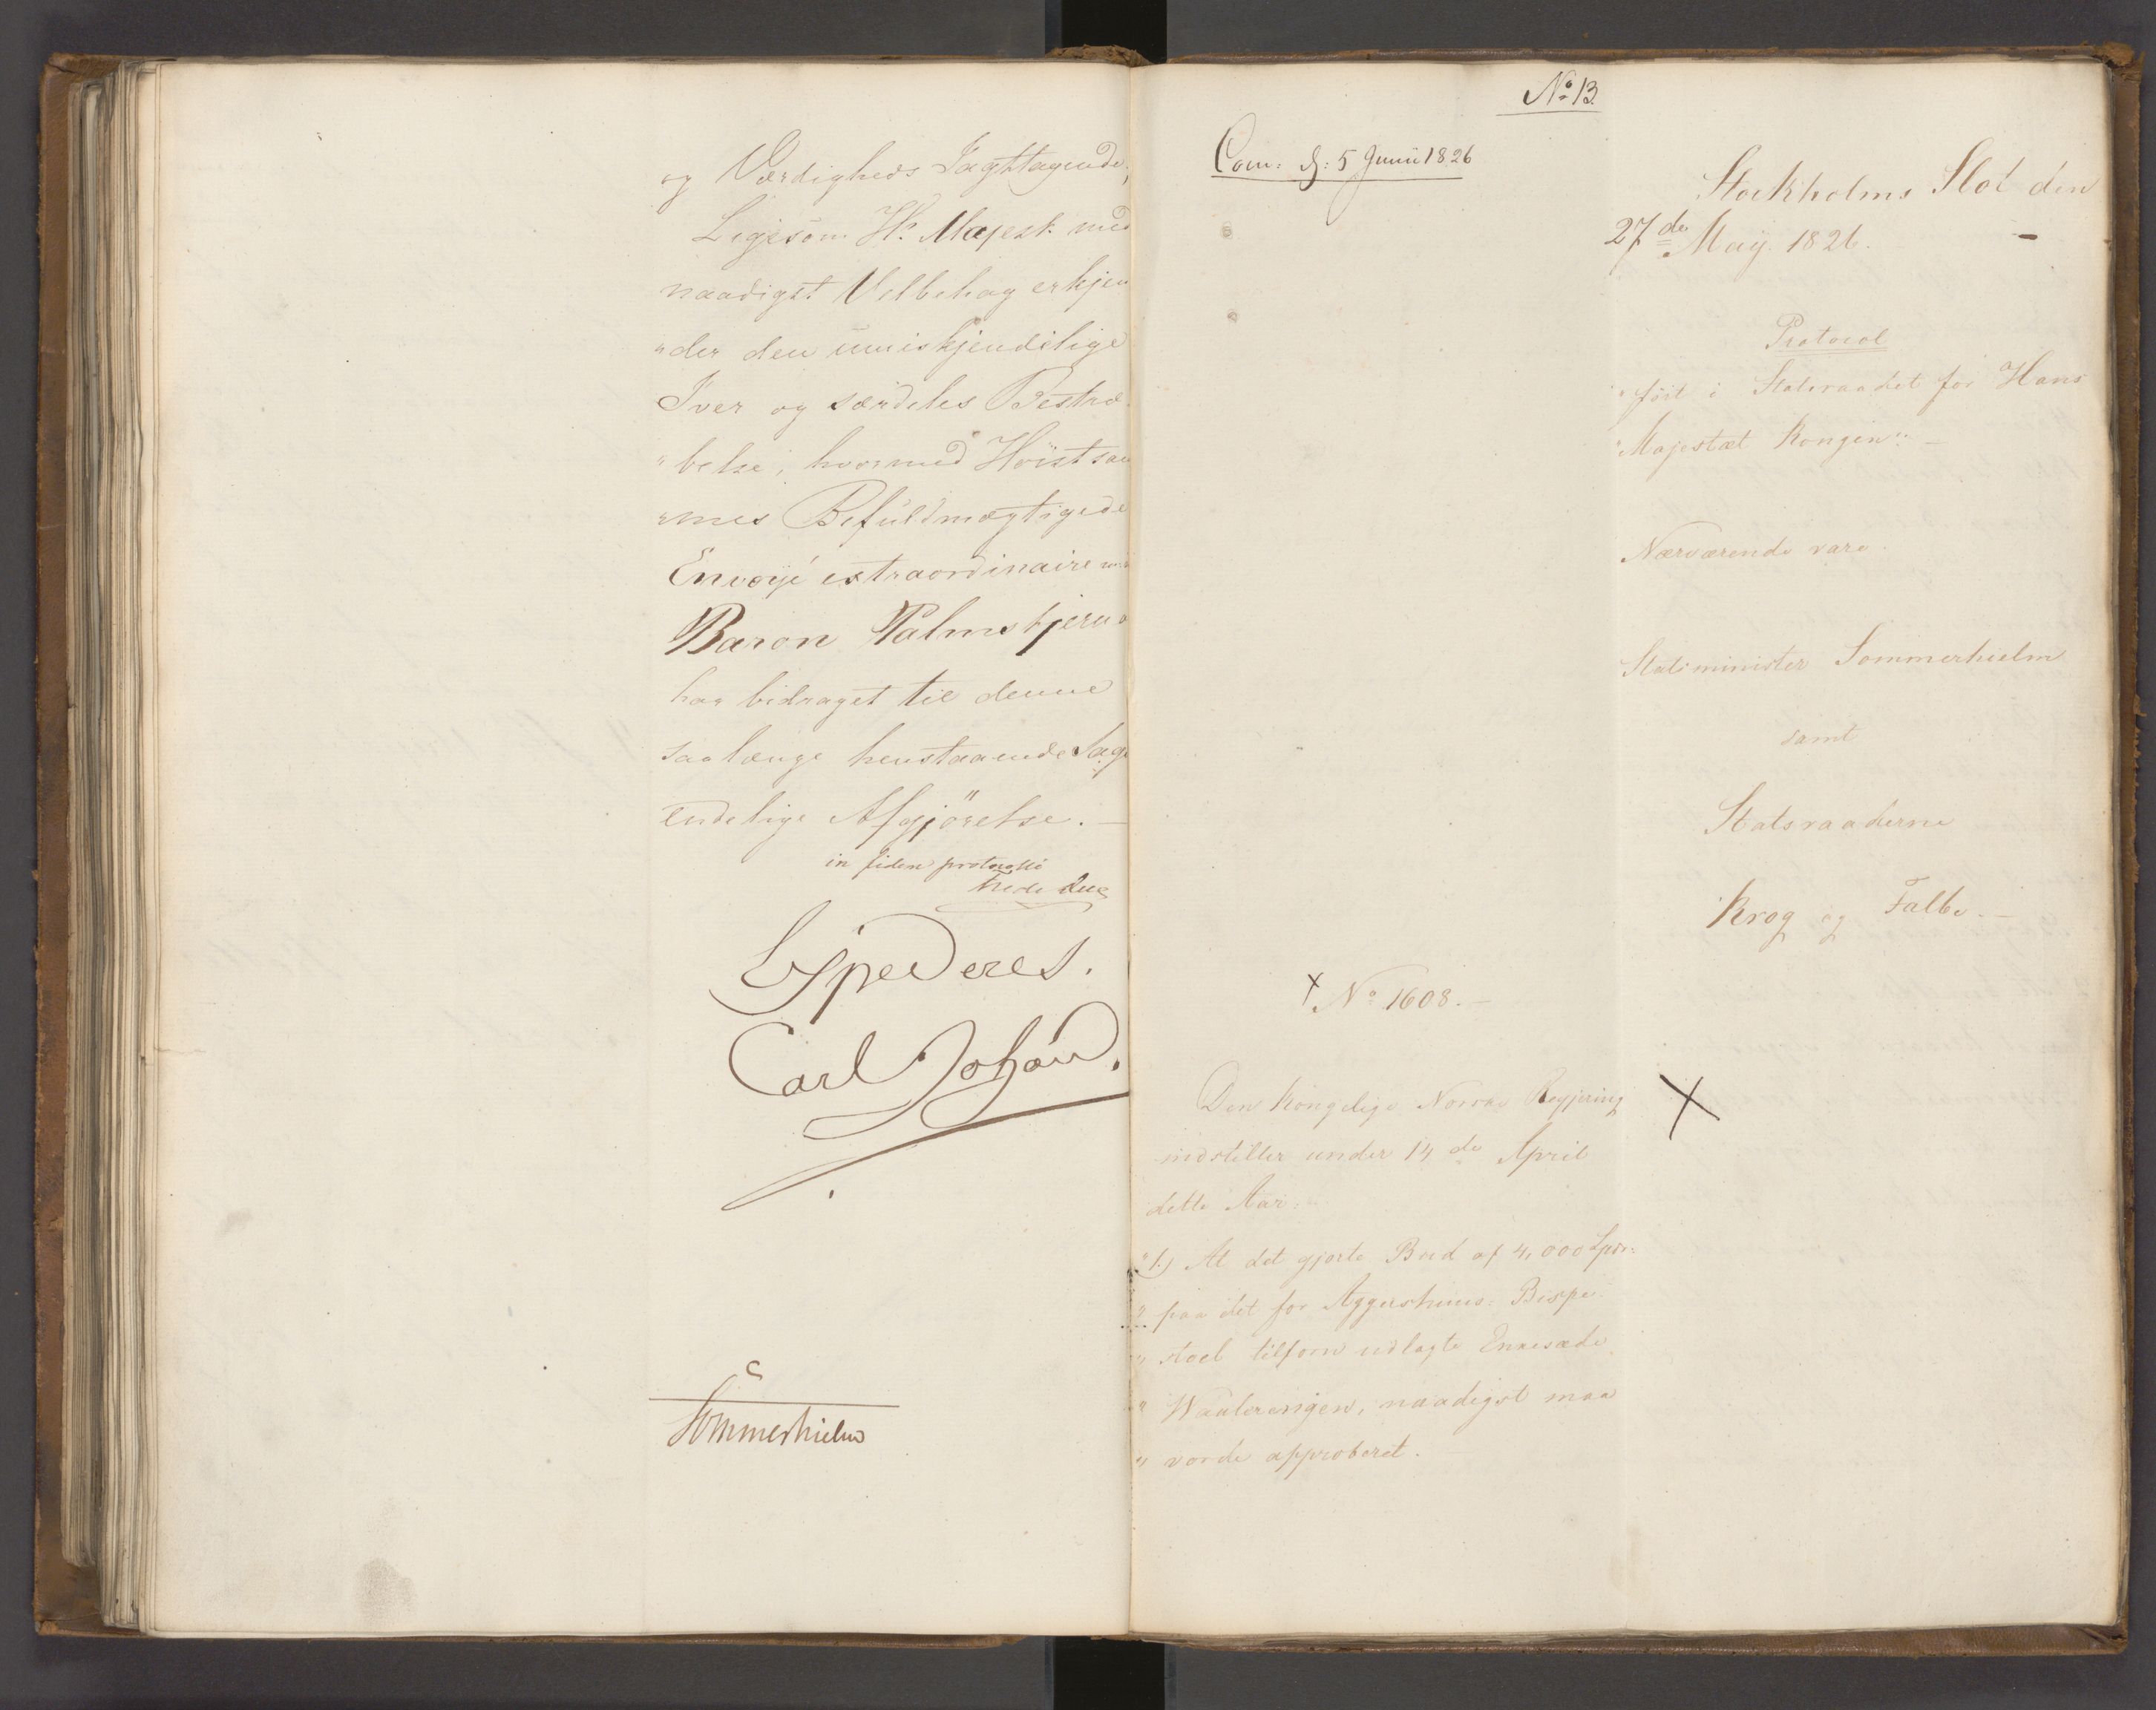 og Værdigheds Iagttagende;
Ligesom Hs. Majest. med
naadigst Velbehag erkjen
"der den umiskjendelige
Iver og særdeles Bestræ
"belse, hvormed Høistsam
"mes Befuldmægtigede
Envoyé extraordinaire
Baron Palmstjerna
har bidraget til denne
saa længe henstaaende Sags
endelige Afgjörelse. —
in fidem protocolli
Exspederes.
Carl Johan.
Sommerhielm
No 13.
Com: d: 5 Junii 1826
Stockholms Slot den
27de May 1826.
Protocol
"ført i Statsraadet for Hans
"Majestæt Kongen": —
Nærværende vare
Statsminister Sommerhielm
samt
Statsraaderne
Krog og Falbe. —
X No 1608. —
X
Den kongelige Norske Regjering
indstiller under 14de April
dette Aar:
"1.) At det gjorte Bud af 4,000 Spdr:
" paa det for Aggershuus Bispe
" stoel tilforn udlagte Enkesæde
" Waalerengen, naadigst maa
" vorde approberet. —